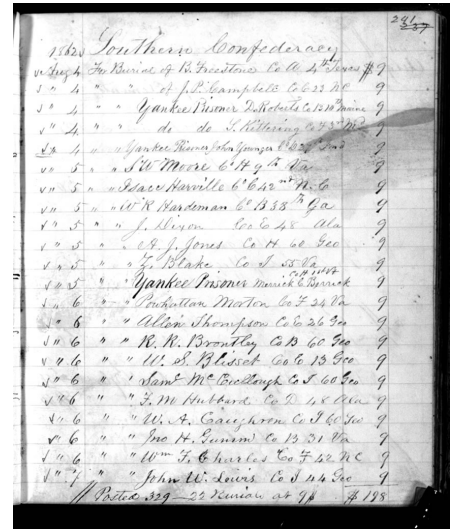 291
237
1862 Southern Confederacy
v Aug 4 For Burial of B. Freestone Co A 4th Texas $9
v " 4 " " of J. P. Campbell Co E 23 NC 9
v " 4 " " Yankee Prisoner D. Roberts Co B 10th Maine 9
v " 4 " " do do T. Kittering Co F 3rd Md 9
v " 4 " " Yankee Prisoner John Younger Co Ind 9
v " 5 " " S W Moore Co H 9th Va 9
v " 5 " " Isaac Harville Co E 42nd N.C 9
v " 5 " " W R Hardeman Co B 38th Ga 9
v " 5 " " J. Dixon Co C 48 Ala 9
v " 5 " " A. J. Jones Co H 60 Geo 9
v " 5 " " Z. Blake Co I 55 Va 9
v " 5 " " Yankee Prisoner Merrick C. Berrick Co H 1st 9
v " 6 " " Powhattan Morton Co F 24 Va 9
v " 6 " " Allen Thompson Co E 26 Geo 9
v " 6 " " R. R. Brontley Co B 60 Geo 9
v " 6 " " W. S. Blisset Co E 13 Geo 9
v " 6 " " Saml McCullough Co I 60 Geo 9
v " 6 " " F. M Hubbard Co D 48 Ala 9
v " 6 " " W. A. Caughron Co I 60 Geo 9
v " 6 " " Jno H. Gumm Co B 31 Va 9
v " 6 " " Wm F. Charles Co F 42 NC 9
v " 7 " " John W. Lewis Co I 44 Geo 9
// Posted 329 — 22 Burials at 9$ $198